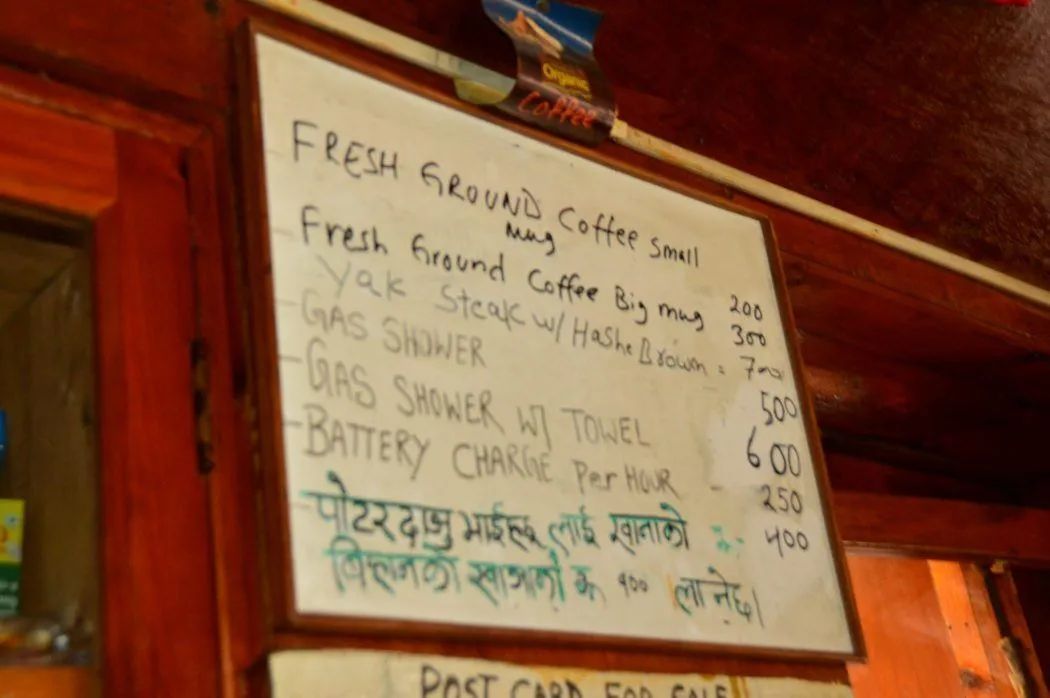 Organic
Coffee
FRESH GROUND Coffee small
mug 200
Fresh Ground Coffee Big mug 300
Yak Steak w/ Hashe Brown = 700
- GAS SHOWER 500
- GAS SHOWER W/ TOWEL 600
- BATTERY CHARGE Per HOUR - 250
- पोटर दाजु भाईहरु लाई खानाको रु. 400
बिहानको खाजाको रु १०० लाग्नेछ।
POST CARD FOR SALE